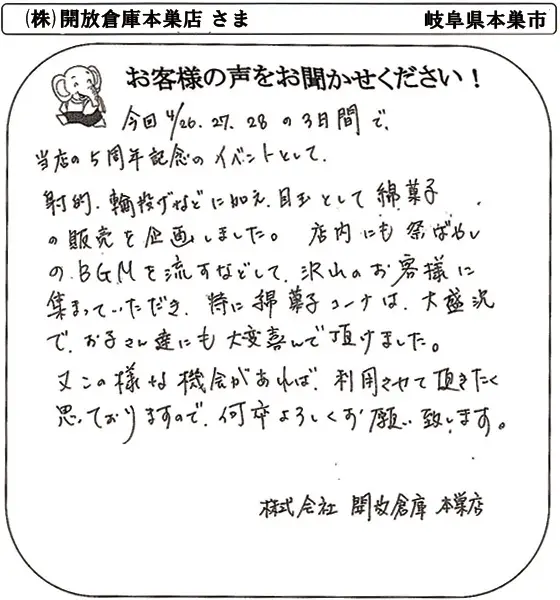 (株)開放倉庫本巣店 さま 岐阜県本巣市
お客様の声をお聞かせください！
今回 4/26.27.28 の3日間で、
当店の5周年記念のイベントとして、
射的、輪投げなどに加え、目玉として綿菓子
の販売を企画しました。 店内にも祭ばやし
のBGMを流すなどして、沢山のお客様に
集まっていただき、特に綿菓子コーナは、大盛況
で、お子さん達にも大変喜んで頂けました。
又この様な機会があれば、利用させて頂きたく
思っておりますので、何卒よろしくお願い致します。
株式会社 開放倉庫 本巣店